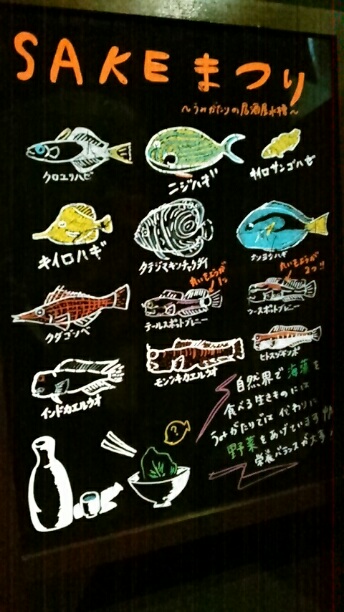 SAKEまつり
～うみがたりの居酒屋水槽～
クロユリハゼ
ニジハギ
キイロサンゴハゼ
キイロハギ
タテジマキンチャクダイ
ナンヨウハギ
クダゴンベ
テールスポットブレニー
ツースポットブレニー
インドカエルウオ
モンツキカエルウオ
ヒトスジギンポ
自然界で海藻を
食べる生きものには
うみがたりでは代わりに
野菜をあげています
栄養バランスが大事